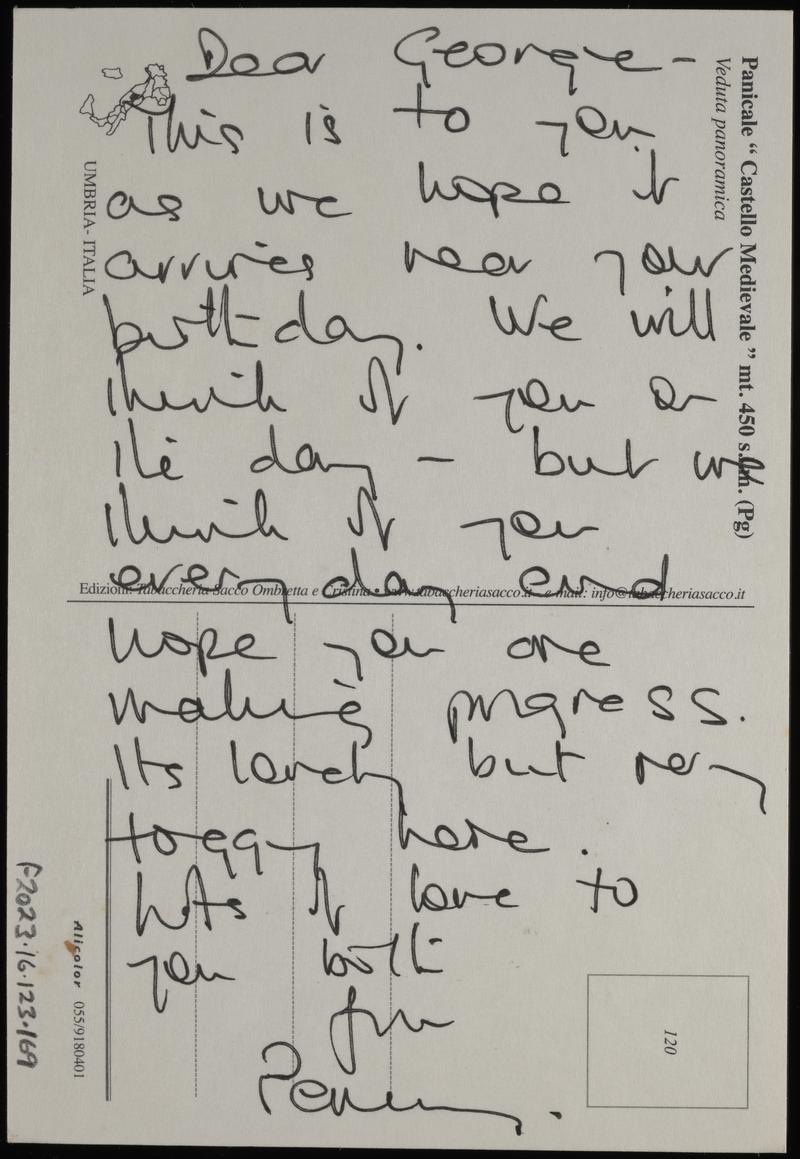 Dear Georgie -
This is to you
as we hope it
arrives near your
birthday. We will
think of you on
the day - but we
think of you
every day and
hope you are
making progress.
Its lovely but very
foggy here.
Lots of love to
you both
from
Penny.
Panicale “ Castello Medievale ” mt. 450 s.l.m. (Pg)
Veduta panoramica
UMBRIA - ITALIA
Edizioni: Tabaccheria Sacco Ombretta e Cristina - www.tabaccheriasacco.it - e-mail: info@tabaccheriasacco.it
Alicolor 055/9180401
120
F2023.16.123.169